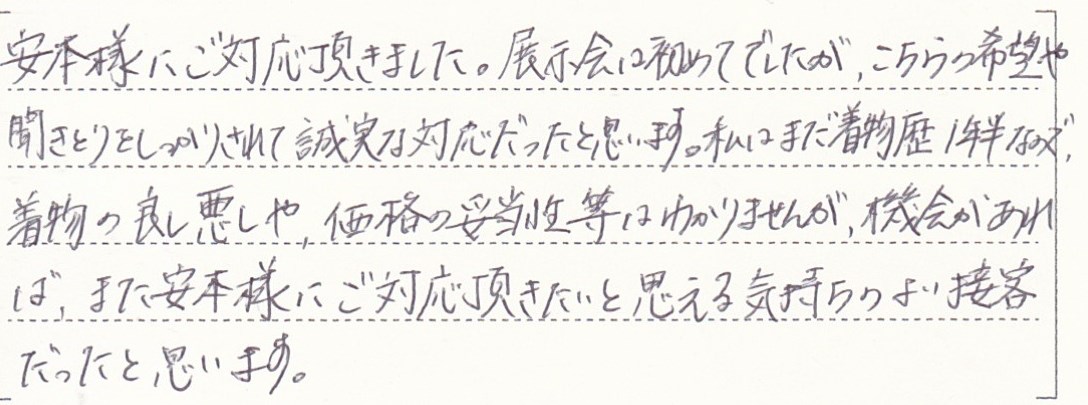 安本様にご対応頂きました。展示会は初めてでしたが、こちらの希望や
聞きとりをしっかりされて誠実な対応だったと思います。私はまだ着物歴1年半なので、
着物の良し悪しや、価格の妥当性等はわかりませんが、機会があれ
ば、また安本様にご対応頂きたいと思える気持ちのよい接客
だったと思います。